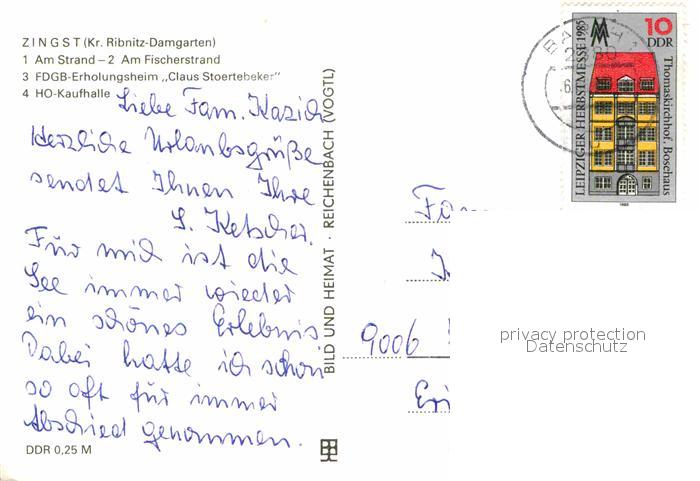 ZINGST (Kr. Ribnitz-Damgarten)
1 Am Strand – 2 Am Fischerstrand
3 FDGB-Erholungsheim „Claus Stoertebeker"
4 HO-Kaufhalle
Liebe Fam. Kazich
Herzliche Urlaubsgrüße
sendet Ihnen Ihre
S. Ketscher.
Für mich ist die
See immer wieder
ein schönes Erlebnis
Dabei hatte ich schon
so oft für immer
Abschied genommen.
DDR 0,25 M
BILD UND HEIMAT · REICHENBACH (VOGTL)
LEIPZIGER HERBSTMESSE 1985
10
DDR
Thomaskirchhof, Bosehaus
1985
Fa
9006
Eri
privacy protection
Datenschutz